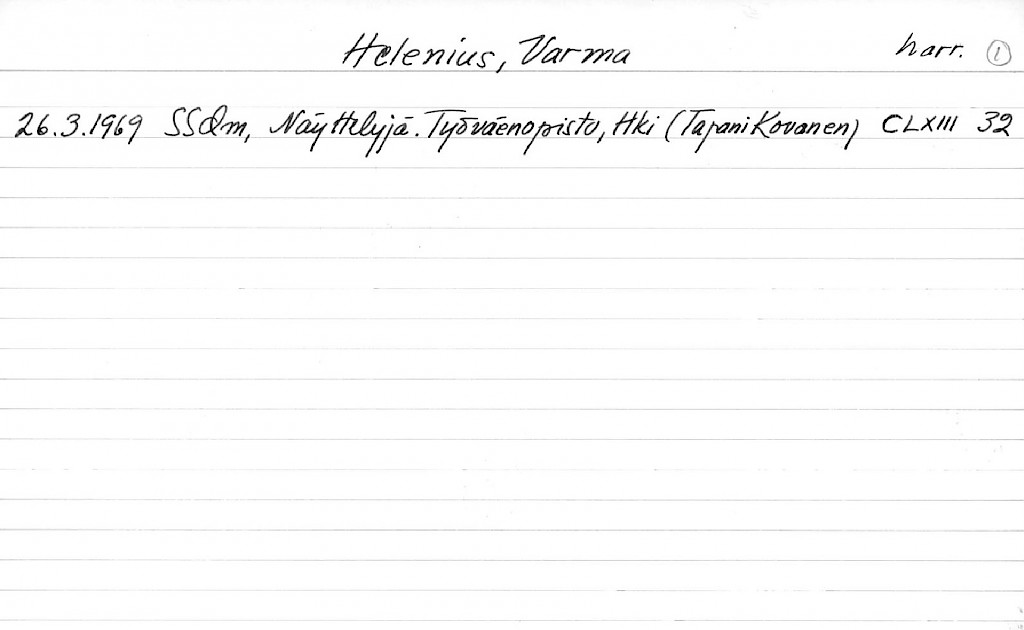 Helenius, Varma harr. 1
26.3.1969 SSdm, Näyttelyjä. Työväenopisto, Hki (Tapani Kovanen) CLXIII 32